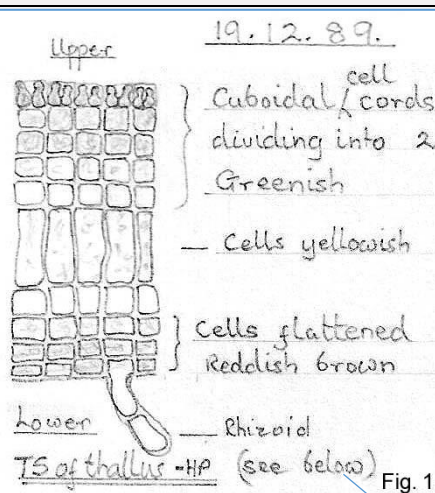 19.12.89.
Upper
cell
Cuboidal / cords
dividing into 2
Greenish
Cells yellowish
Cells flattened
Reddish brown
Lower
Rhizoid
TS of thallus - HP (see below)
Fig. 1